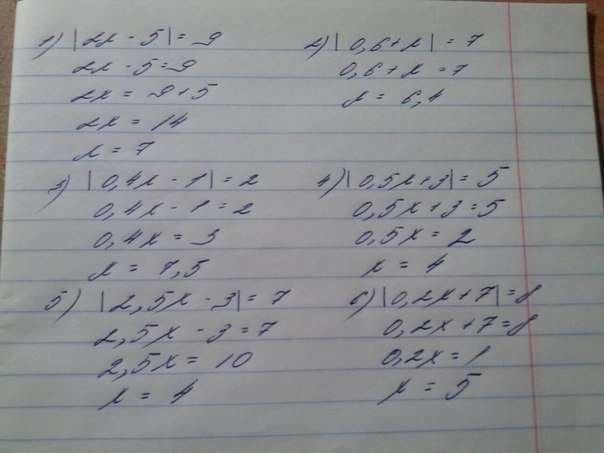 1) |2x - 5| = 9
2x - 5 = 9
2x = 9 + 5
2x = 14
x = 7
2) |0,6 + x| = 7
0,6 + x = 7
x = 6,4
3) |0,4x - 1| = 2
0,4x - 1 = 2
0,4x = 3
x = 7,5
4) |0,5x + 3| = 5
0,5x + 3 = 5
0,5x = 2
x = 4
5) |2,5x - 3| = 7
2,5x - 3 = 7
2,5x = 10
x = 4
6) |0,2x + 7| = 8
0,2x + 7 = 8
0,2x = 1
x = 5